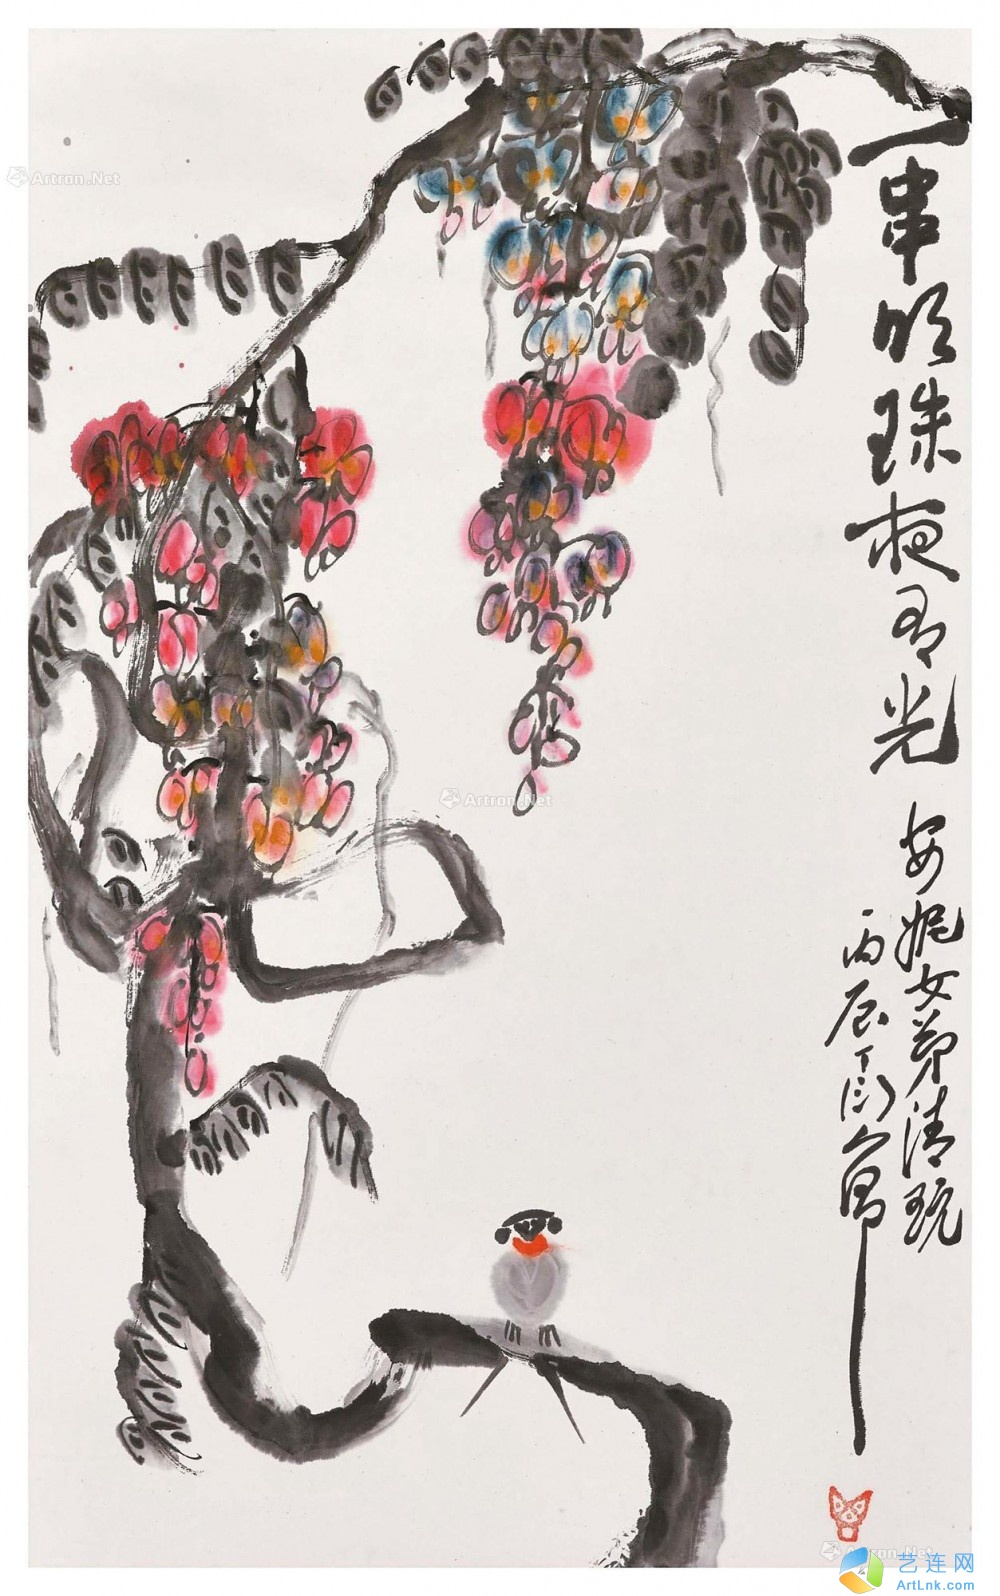 一串明珠夜有光
安娓女弟清玩
丙辰丁衍庸
Artron.Net
Artron.Net
Artron.Net
艺连网
ArtLnk.com